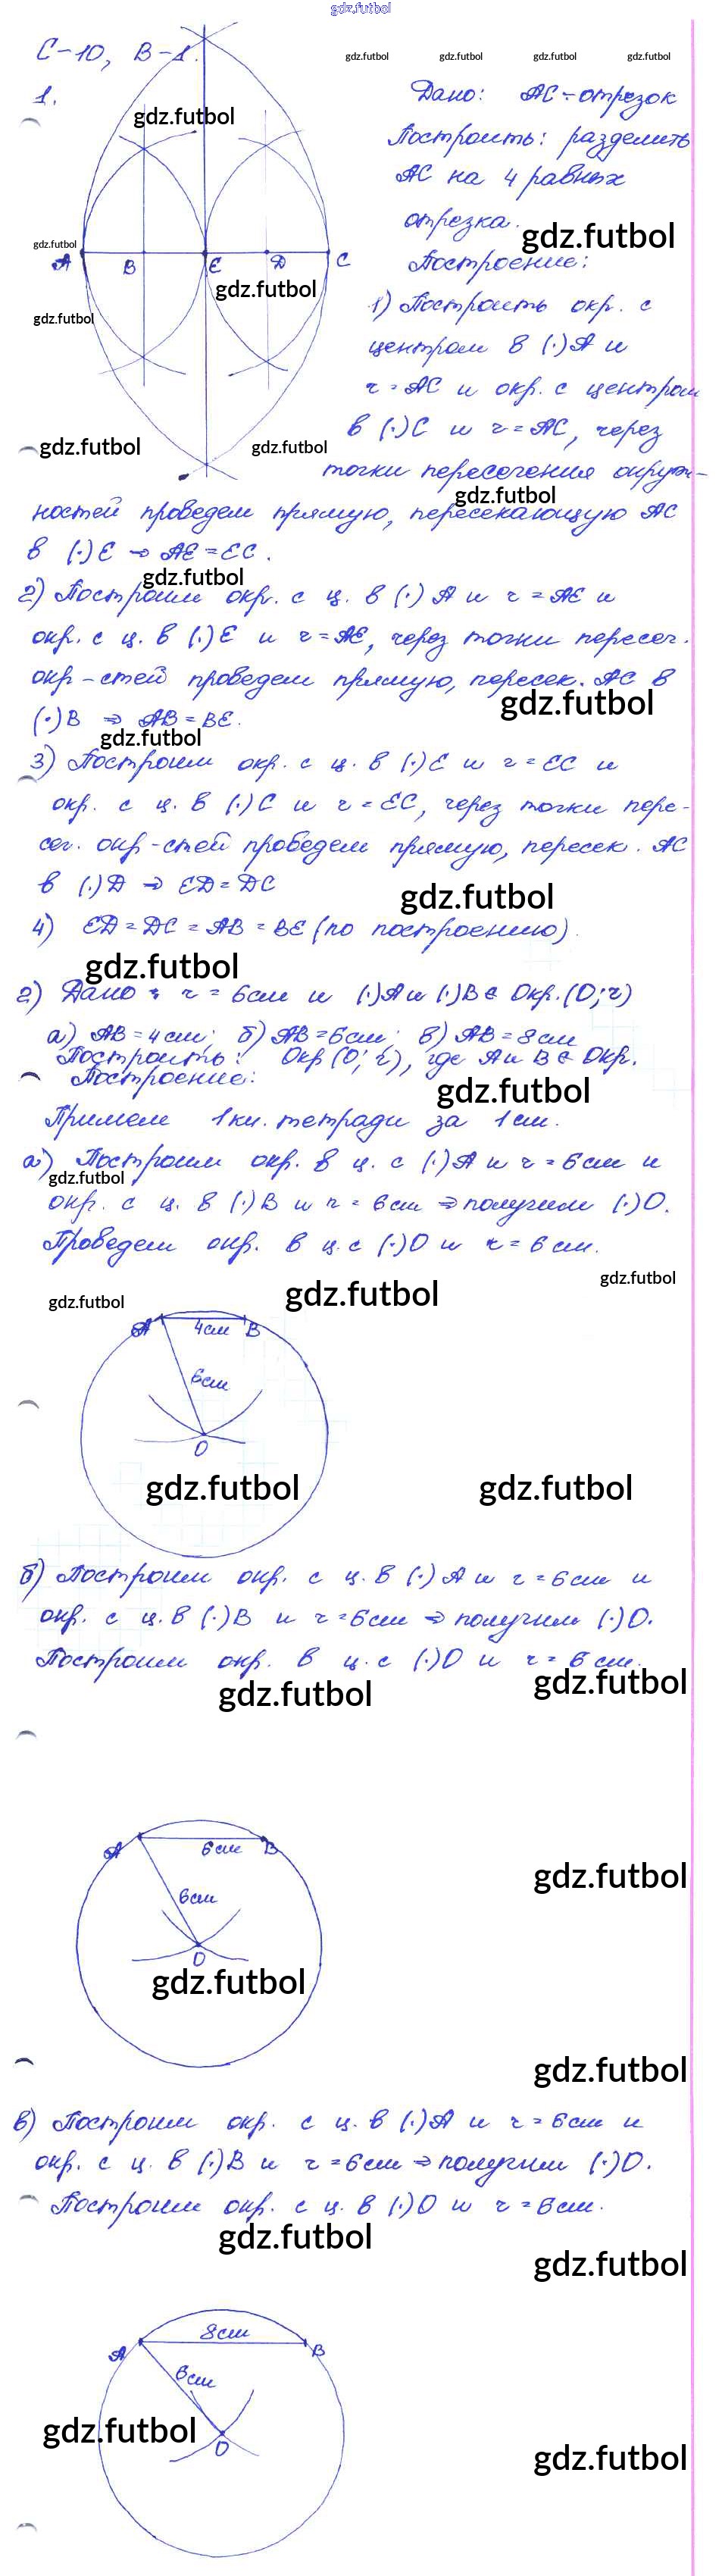 gdz.futbol
С-10, В-1.
gdz.futbol gdz.futbol gdz.futbol gdz.futbol
1.
Дано: AC - отрезок
gdz.futbol
Построить: разделить
AC на 4 равных
отрезка.
gdz.futbol
gdz.futbol
A B E D C
Построение:
gdz.futbol
1) Построить окр. с
gdz.futbol
центром в (·)A и
r = AC и окр. с центром
в (·)C и r = AC, через
gdz.futbol gdz.futbol
точки пересечения окруж-
gdz.futbol
ностей проведем прямую, пересекающую AC
в (·)E ⇒ AE = EC.
gdz.futbol
2) Построим окр. с ц. в (·) A и r = AE и
окр. с ц. в (·)E и r = AE, через точки пересеч.
окр-стей проведем прямую, пересек. AC в
gdz.futbol
(·)B ⇒ AB = BE.
gdz.futbol
3) Построим окр. с ц. в (·)E и r = EC и
окр. с ц. в (·)C и r = EC, через точки пере-
сеч. окр-стей проведем прямую, пересек. AC
в (·)D ⇒ ED = DC
gdz.futbol
4) ED = DC = AB = BE (по построению).
gdz.futbol
2) Дано: r = 6см и (·)A и (·)B ∈ Окр.(O; r)
а) AB = 4см; б) AB = 6см; в) AB = 8см
Построить: Окр (O; r), где A и B ∈ Окр.
Построение:
gdz.futbol
Примем 1кл. тетради за 1см.
а) Построим окр. в ц. с (·)A и r = 6см и
gdz.futbol
окр. с ц. в (·)B и r = 6см ⇒ получим (·)O.
Проведем окр. в ц. с (·)O и r = 6см.
gdz.futbol
gdz.futbol
gdz.futbol
A 4см B
6см
O
gdz.futbol gdz.futbol
б) Построим окр. с ц. в (·)A и r = 6см и
окр. с ц. в (·)B и r = 6см ⇒ получим (·)O.
Построим окр. в ц. с (·)O и r = 6см.
gdz.futbol
gdz.futbol
A 6см B
gdz.futbol
6см
O
gdz.futbol
gdz.futbol
в) Построим окр. с ц. в (·)A и r = 6см и
окр. с ц. в (·)B и r = 6см ⇒ получим (·)O.
Построим окр. с ц. в (·)O и r = 6см.
gdz.futbol
gdz.futbol
8см
A B
6см
gdz.futbol
O
gdz.futbol